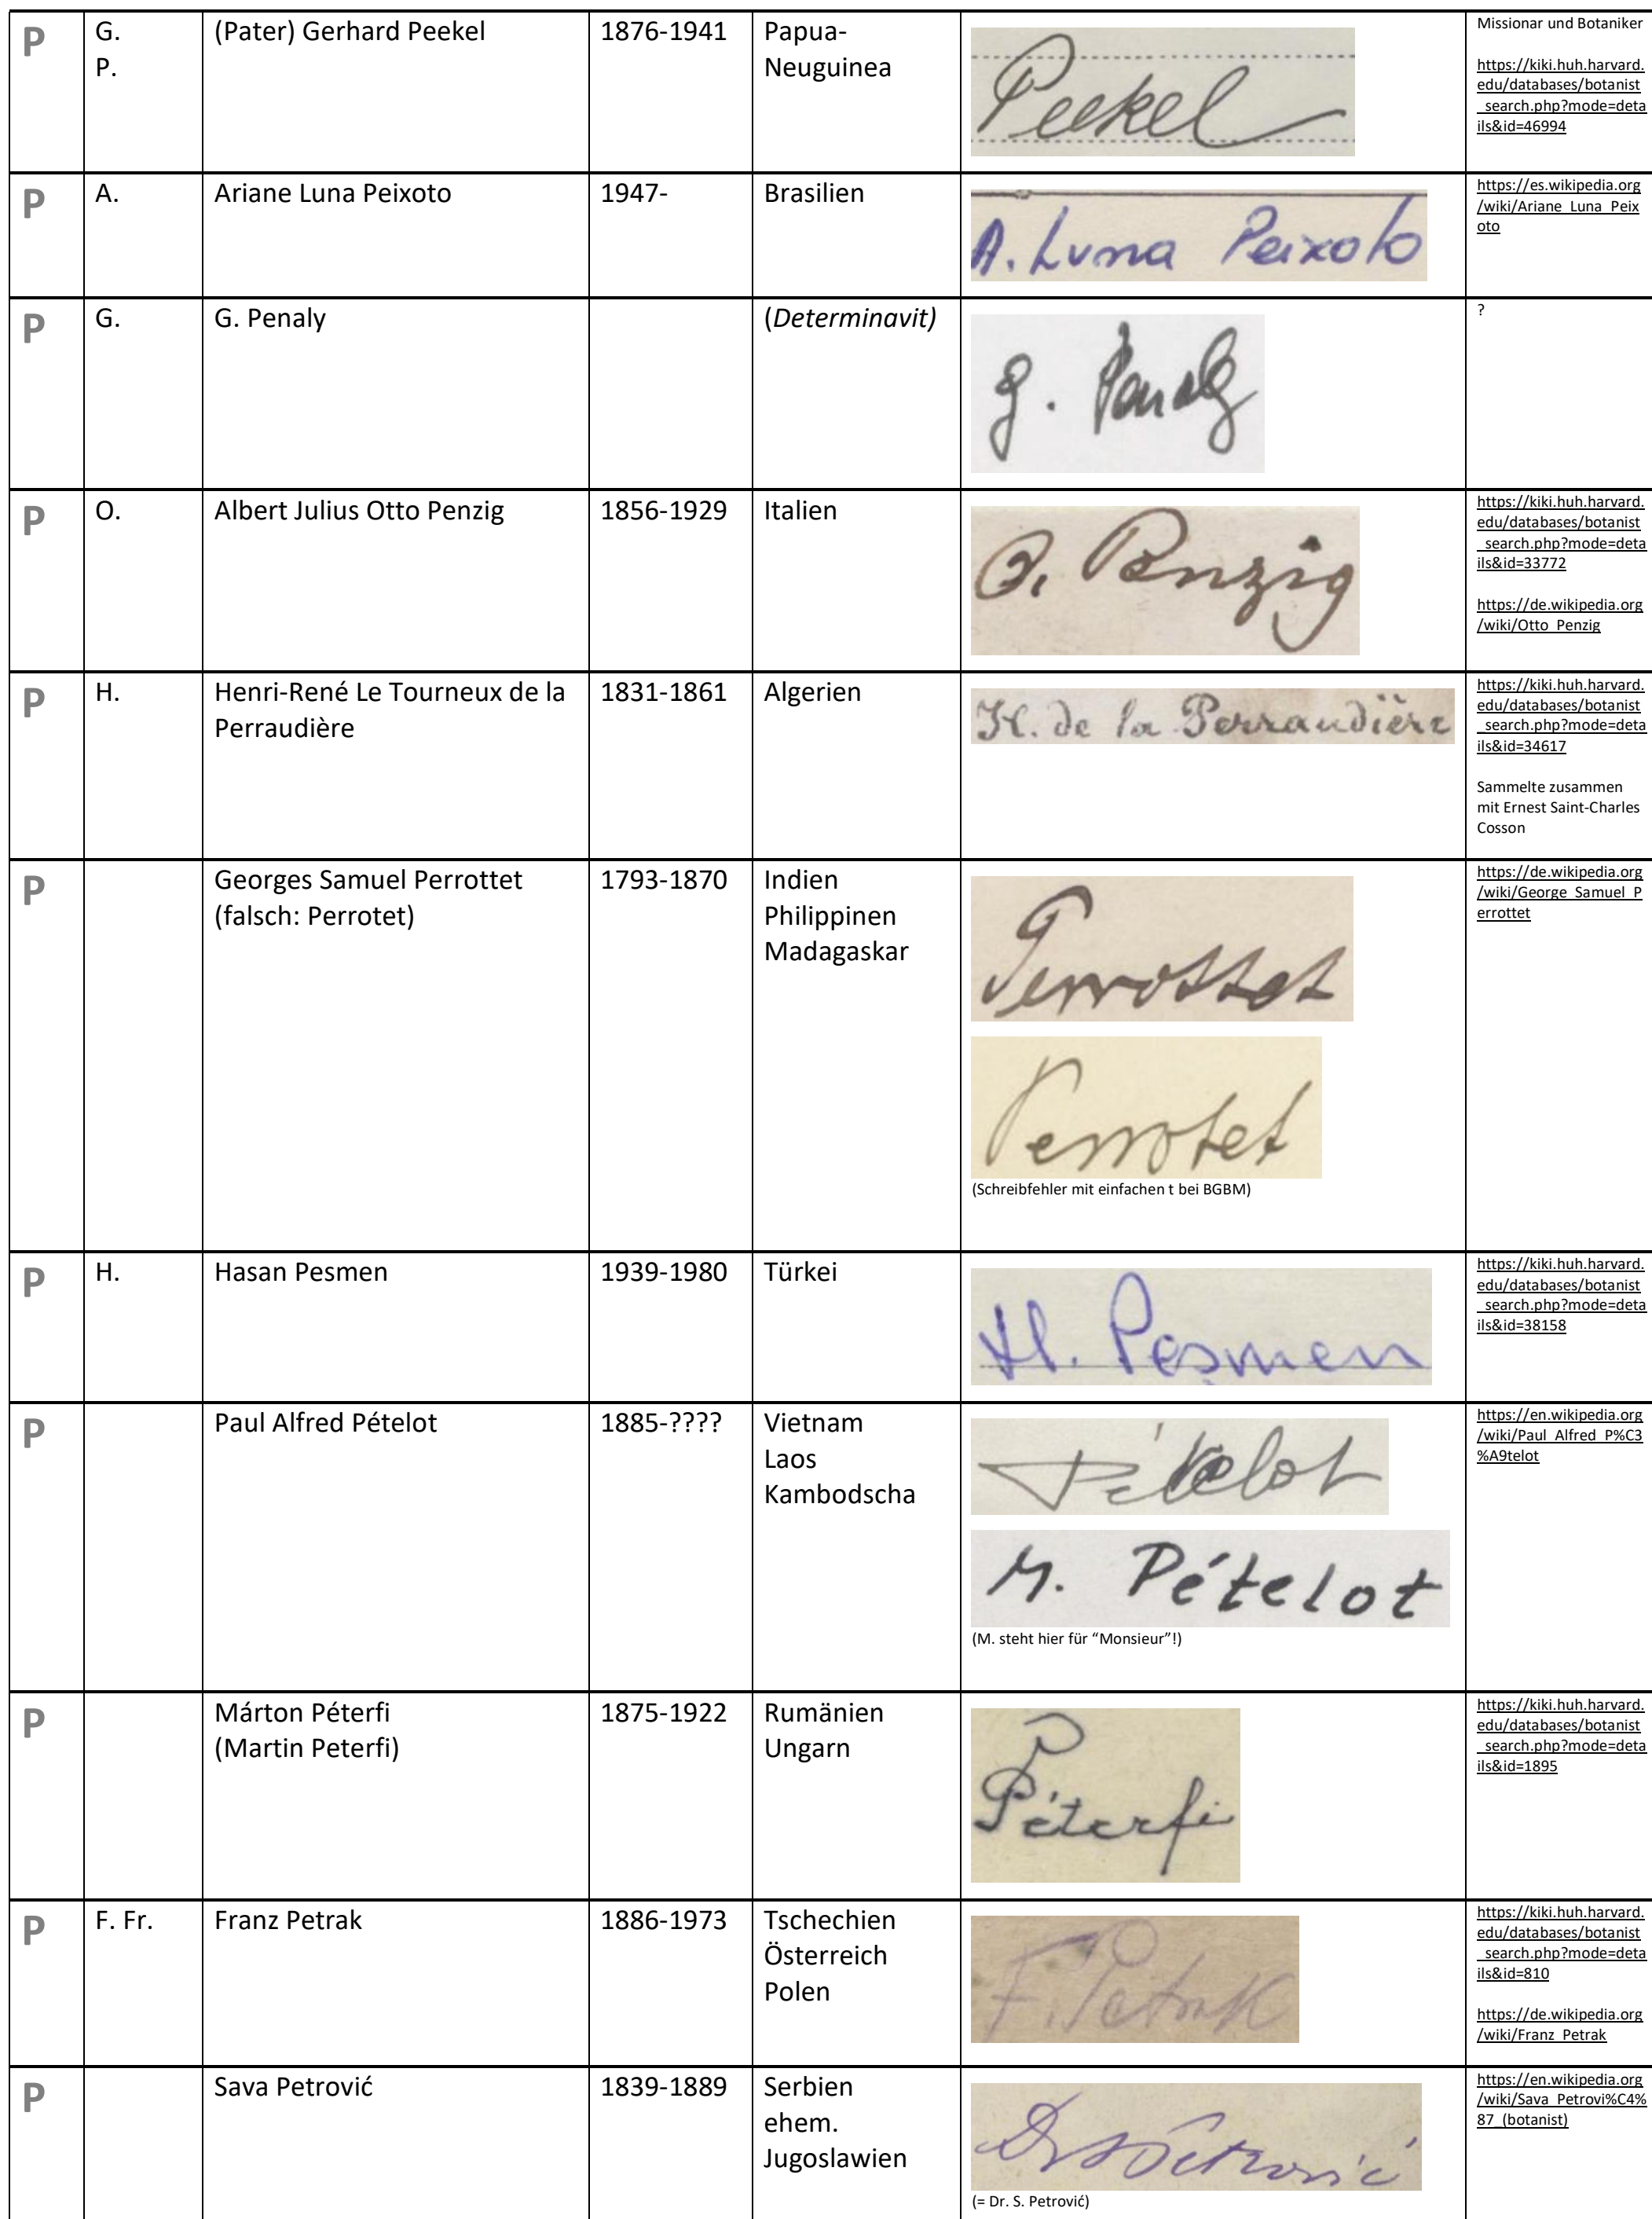 P
G.
P.
(Pater) Gerhard Peekel
1876-1941
Papua-
Neuguinea
Peekel
Missionar und Botaniker
https://kiki.huh.harvard.
edu/databases/botanist
_search.php?mode=deta
ils&id=46994
P
A.
Ariane Luna Peixoto
1947-
Brasilien
A. Luna Peixoto
https://es.wikipedia.org
/wiki/Ariane_Luna_Peix
oto
P
G.
G. Penaly
(Determinavit)
G. Penaly
?
P
O.
Albert Julius Otto Penzig
1856-1929
Italien
O. Penzig
https://kiki.huh.harvard.
edu/databases/botanist
_search.php?mode=deta
ils&id=33772
https://de.wikipedia.org
/wiki/Otto_Penzig
P
H.
Henri-René Le Tourneux de la
Perraudière
1831-1861
Algerien
H. de la Perraudière
https://kiki.huh.harvard.
edu/databases/botanist
_search.php?mode=deta
ils&id=34617
Sammelte zusammen
mit Ernest Saint-Charles
Cosson
P
Georges Samuel Perrottet
(falsch: Perrotet)
1793-1870
Indien
Philippinen
Madagaskar
Perrottet
Perrotet
(Schreibfehler mit einfachen t bei BGBM)
https://de.wikipedia.org
/wiki/George_Samuel_P
errottet
P
H.
Hasan Pesmen
1939-1980
Türkei
H. Peşmen
https://kiki.huh.harvard.
edu/databases/botanist
_search.php?mode=deta
ils&id=38158
P
Paul Alfred Pételot
1885-????
Vietnam
Laos
Kambodscha
Pételot
M. Pételot
(M. steht hier für “Monsieur”!)
https://en.wikipedia.org
/wiki/Paul_Alfred_P%C3
%A9telot
P
Márton Péterfi
(Martin Peterfi)
1875-1922
Rumänien
Ungarn
Péterfi
https://kiki.huh.harvard.
edu/databases/botanist
_search.php?mode=deta
ils&id=1895
P
F. Fr.
Franz Petrak
1886-1973
Tschechien
Österreich
Polen
F. Petrak
https://kiki.huh.harvard.
edu/databases/botanist
_search.php?mode=deta
ils&id=810
https://de.wikipedia.org
/wiki/Franz_Petrak
P
Sava Petrović
1839-1889
Serbien
ehem.
Jugoslawien
Dr S Petrović
(= Dr. S. Petrović)
https://en.wikipedia.org
/wiki/Sava_Petrovi%C4%
87_(botanist)